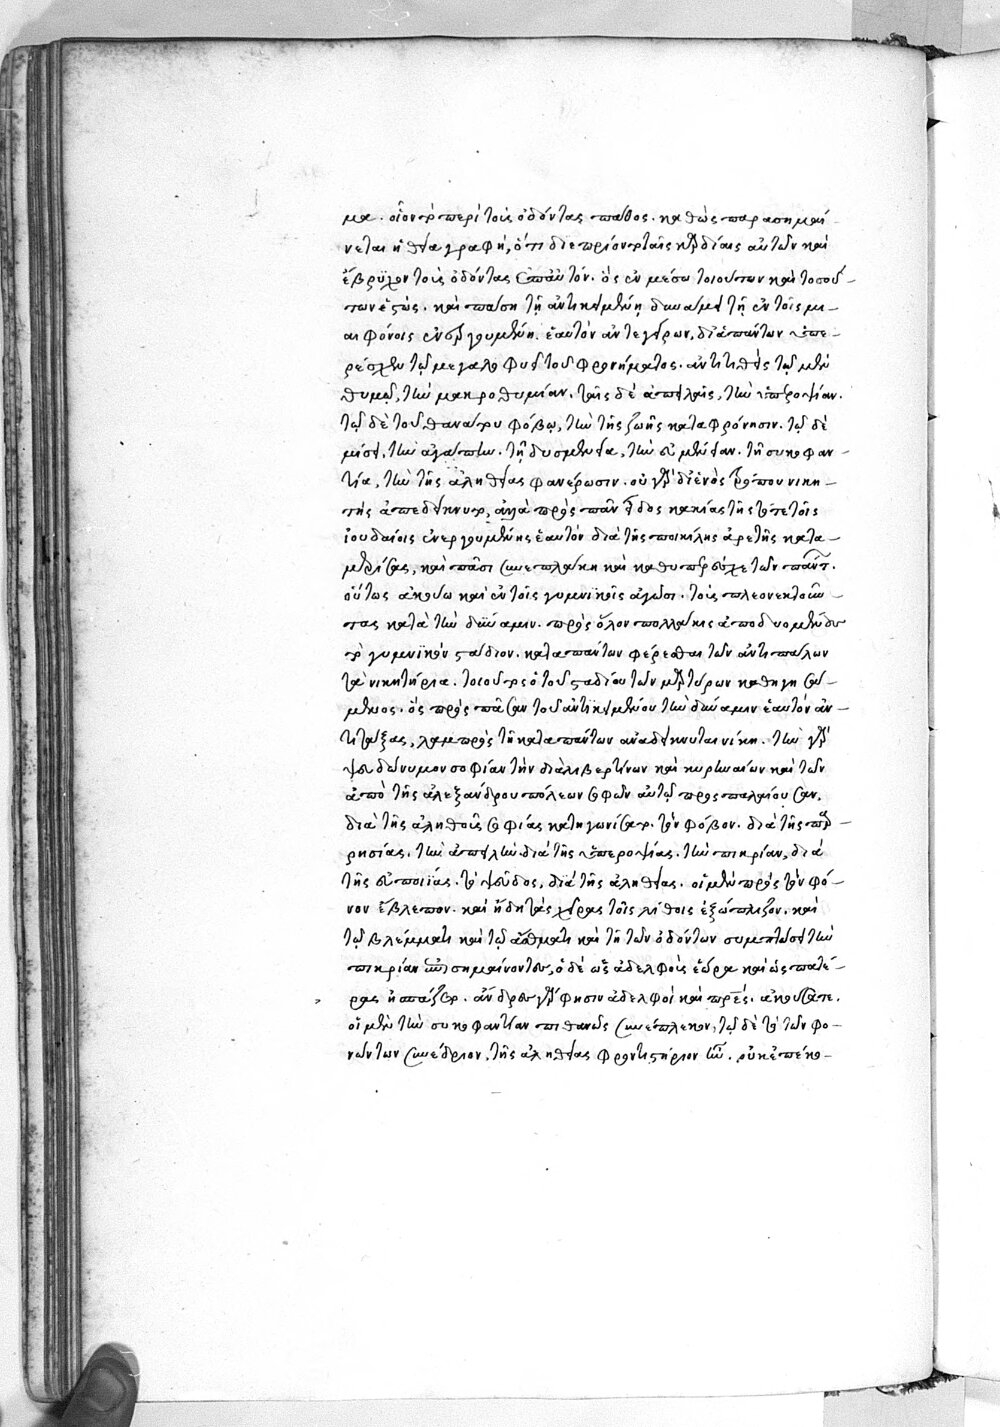 μα. οἷον τὸ περὶ τοὺς ὀδόντας πάθος. καθὼς παρασημαί-
νεται ἡ θεία γραφή, ὅτι διεπρίοντο ταῖς καρδίαις αὐτῶν καὶ
ἔβρυχον τοὺς ὀδόντας ἐπ' αὐτόν. ὃς ἐν μέσω τοιούτων καὶ τοσού-
των ἑστώς. καὶ πάση τῇ ἀντικειμένη δυνάμει τῇ ἐν τοῖς μι-
αιφόνοις ἐνεργουμένη. ἑαυτὸν ἀντεγείρων, διὰ πάντων ὑπε-
ρέσχεν τῷ μεγαλοφυεῖ τοῦ φρονήματος. ἀντιτιθεὶς τῷ μὲν
θυμῷ, τὴν μακροθυμίαν. ταῖς δὲ ἀπειλαῖς, τὴν ὑπεροψίαν.
τῷ δὲ τοῦ θανάτου φόβω, τὴν τῆς ζωῆς καταφρόνησιν. τῷ δὲ
μίσει, τὴν ἀγάπην. τῇ δυσμενεία, τὴν εὐμένειαν. τῇ συκοφαν-
τία, τὴν τῆς ἀληθείας φανέρωσιν. οὐ γὰρ δι' ἑνὸς τρόπου νικη-
τὴς ἀπεδείκνυτο, ἀλλὰ πρὸς πᾶν εἶδος κακίας τῆς τότε τοῖς
ἰουδαίοις ἐνεργουμένης ἑαυτὸν διὰ τῆς ποικίλης ἀρετῆς κατα-
μερίσας, καὶ πᾶσι συνεπλάκη καὶ καθυπερεῖχε τῶν πάντων.
οὕτως ἀκούω καὶ ἐν τοῖς γυμνικοῖς ἀγῶσι. τοὺς πλεονεκτοῦν-
τας κατὰ τὴν δύναμιν. πρὸς ὅλον πολλάκις ἀποδυομένους
τὸ γυμνικὸν στάδιον. κατὰ πάντων φέρεσθαι τῶν ἀντιπάλων
τὰ νικητήρια. τοιοῦτος ὁ τοῦ σταδίου τῶν μαρτύρων καθηγησά-
μενος. ὃς πρὸς πᾶσαν τοῦ ἀντικειμένου τὴν δύναμιν ἑαυτὸν ἀν-
τιτάξας, λαμπρὸς τῇ κατὰ πάντων ἀναδείκνυται νίκη. τὴν γὰρ
ψευδώνυμον σοφίαν τὴν διὰ λιβερτίνων καὶ κυρηναίων καὶ τῶν
ἀπὸ τῆς ἀλεξάνδρου πόλεως σοφῶν αὐτῷ προσπαλαίουσαν,
διὰ τῆς ἀληθοῦς σοφίας κατηγωνίσατο. τὸν φόβον. διὰ τῆς παρ-
ρησίας. τὴν ἀπειλὴν διὰ τῆς ὑπεροψίας. τὴν πικρίαν, διὰ
τῆς εὐποιΐας. τὸ ψεῦδος, διὰ τῆς ἀληθείας. οἱ μὲν πρὸς τὸν φό-
νον ἔβλεπον. καὶ ἤδη τὰς χεῖρας τοῖς λίθοις ἐξώπλιζον. καὶ
τῷ βλέμματι καὶ τῷ ἄσθματι καὶ τῇ τῶν ὀδόντων συμπτώσει τὴν
πικρίαν ἐπισημαίνοντες, ὁ δὲ ὡς ἀδελφοὺς ἑώρα καὶ ὡς πατέ-
ρας ἠσπάζετο. ἄνδρες γὰρ φησιν ἀδελφοὶ καὶ πρες. ἀκούσατε.
οἱ μὲν τὴν συκοφαντίαν πιθανῶς συνέπλεκον, τῷ δὲ τὸ τῶν φο-
νώντων συνέδριον, τῆς ἀληθείας φροντιστήριον ἦν. οὐκ ἐπέκο-